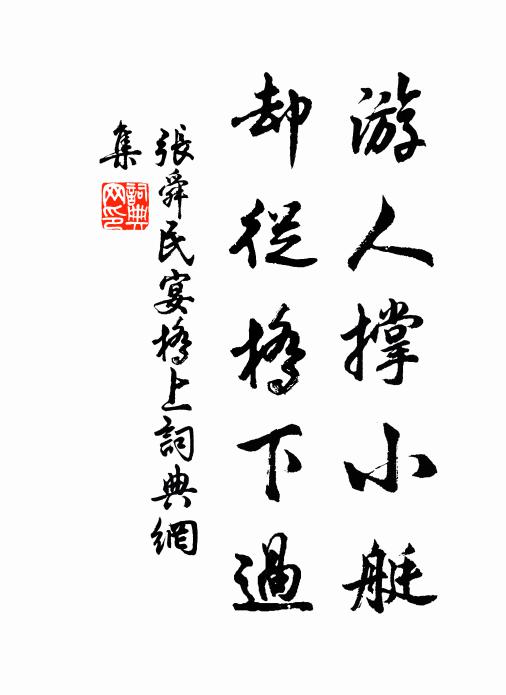 游人撑小艇
却從橋下過
張舜民宴橋上詞典網
集
詞典網印